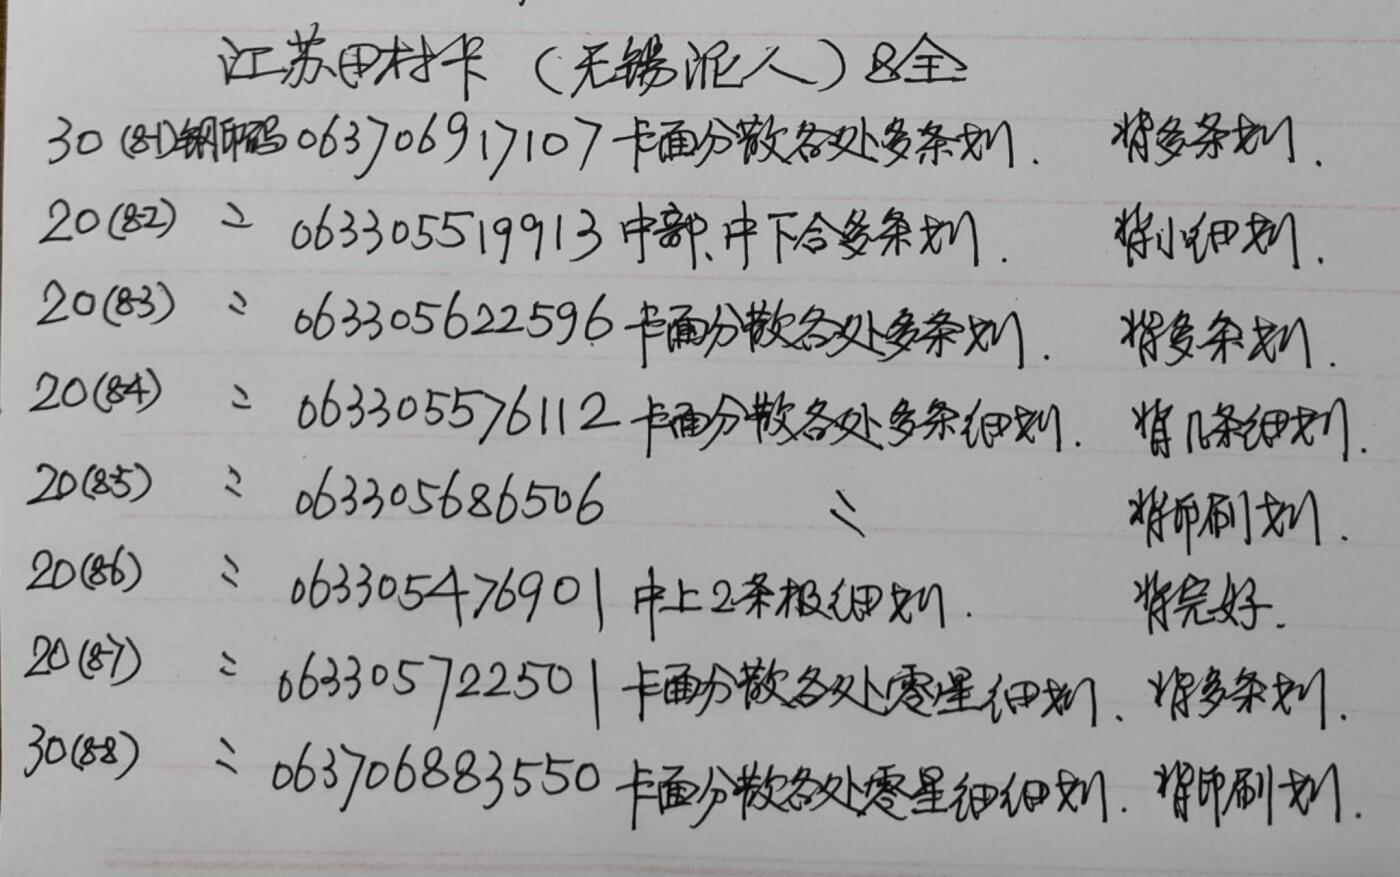 江苏田村卡（无锡泥人）8全
30(8-1)钢印码063706917107卡面分散各处多条划. 背多条划.
20(8-2) 〃 063305519913中部、中下合多条划. 背小细划.
20(8-3) 〃 063305622596卡面分散各处多条划. 背多条划.
20(8-4) 〃 063305576112卡面分散各处多条细划. 背几条细划.
20(8-5) 〃 063305686506 〃 背印刷划.
20(8-6) 〃 063305476901中上2条极细划. 背完好.
20(8-7) 〃 063305722501卡面分散各处零星细划. 背多条划.
30(8-8) 〃 063706883550卡面分散各处零星细细划. 背印刷划.